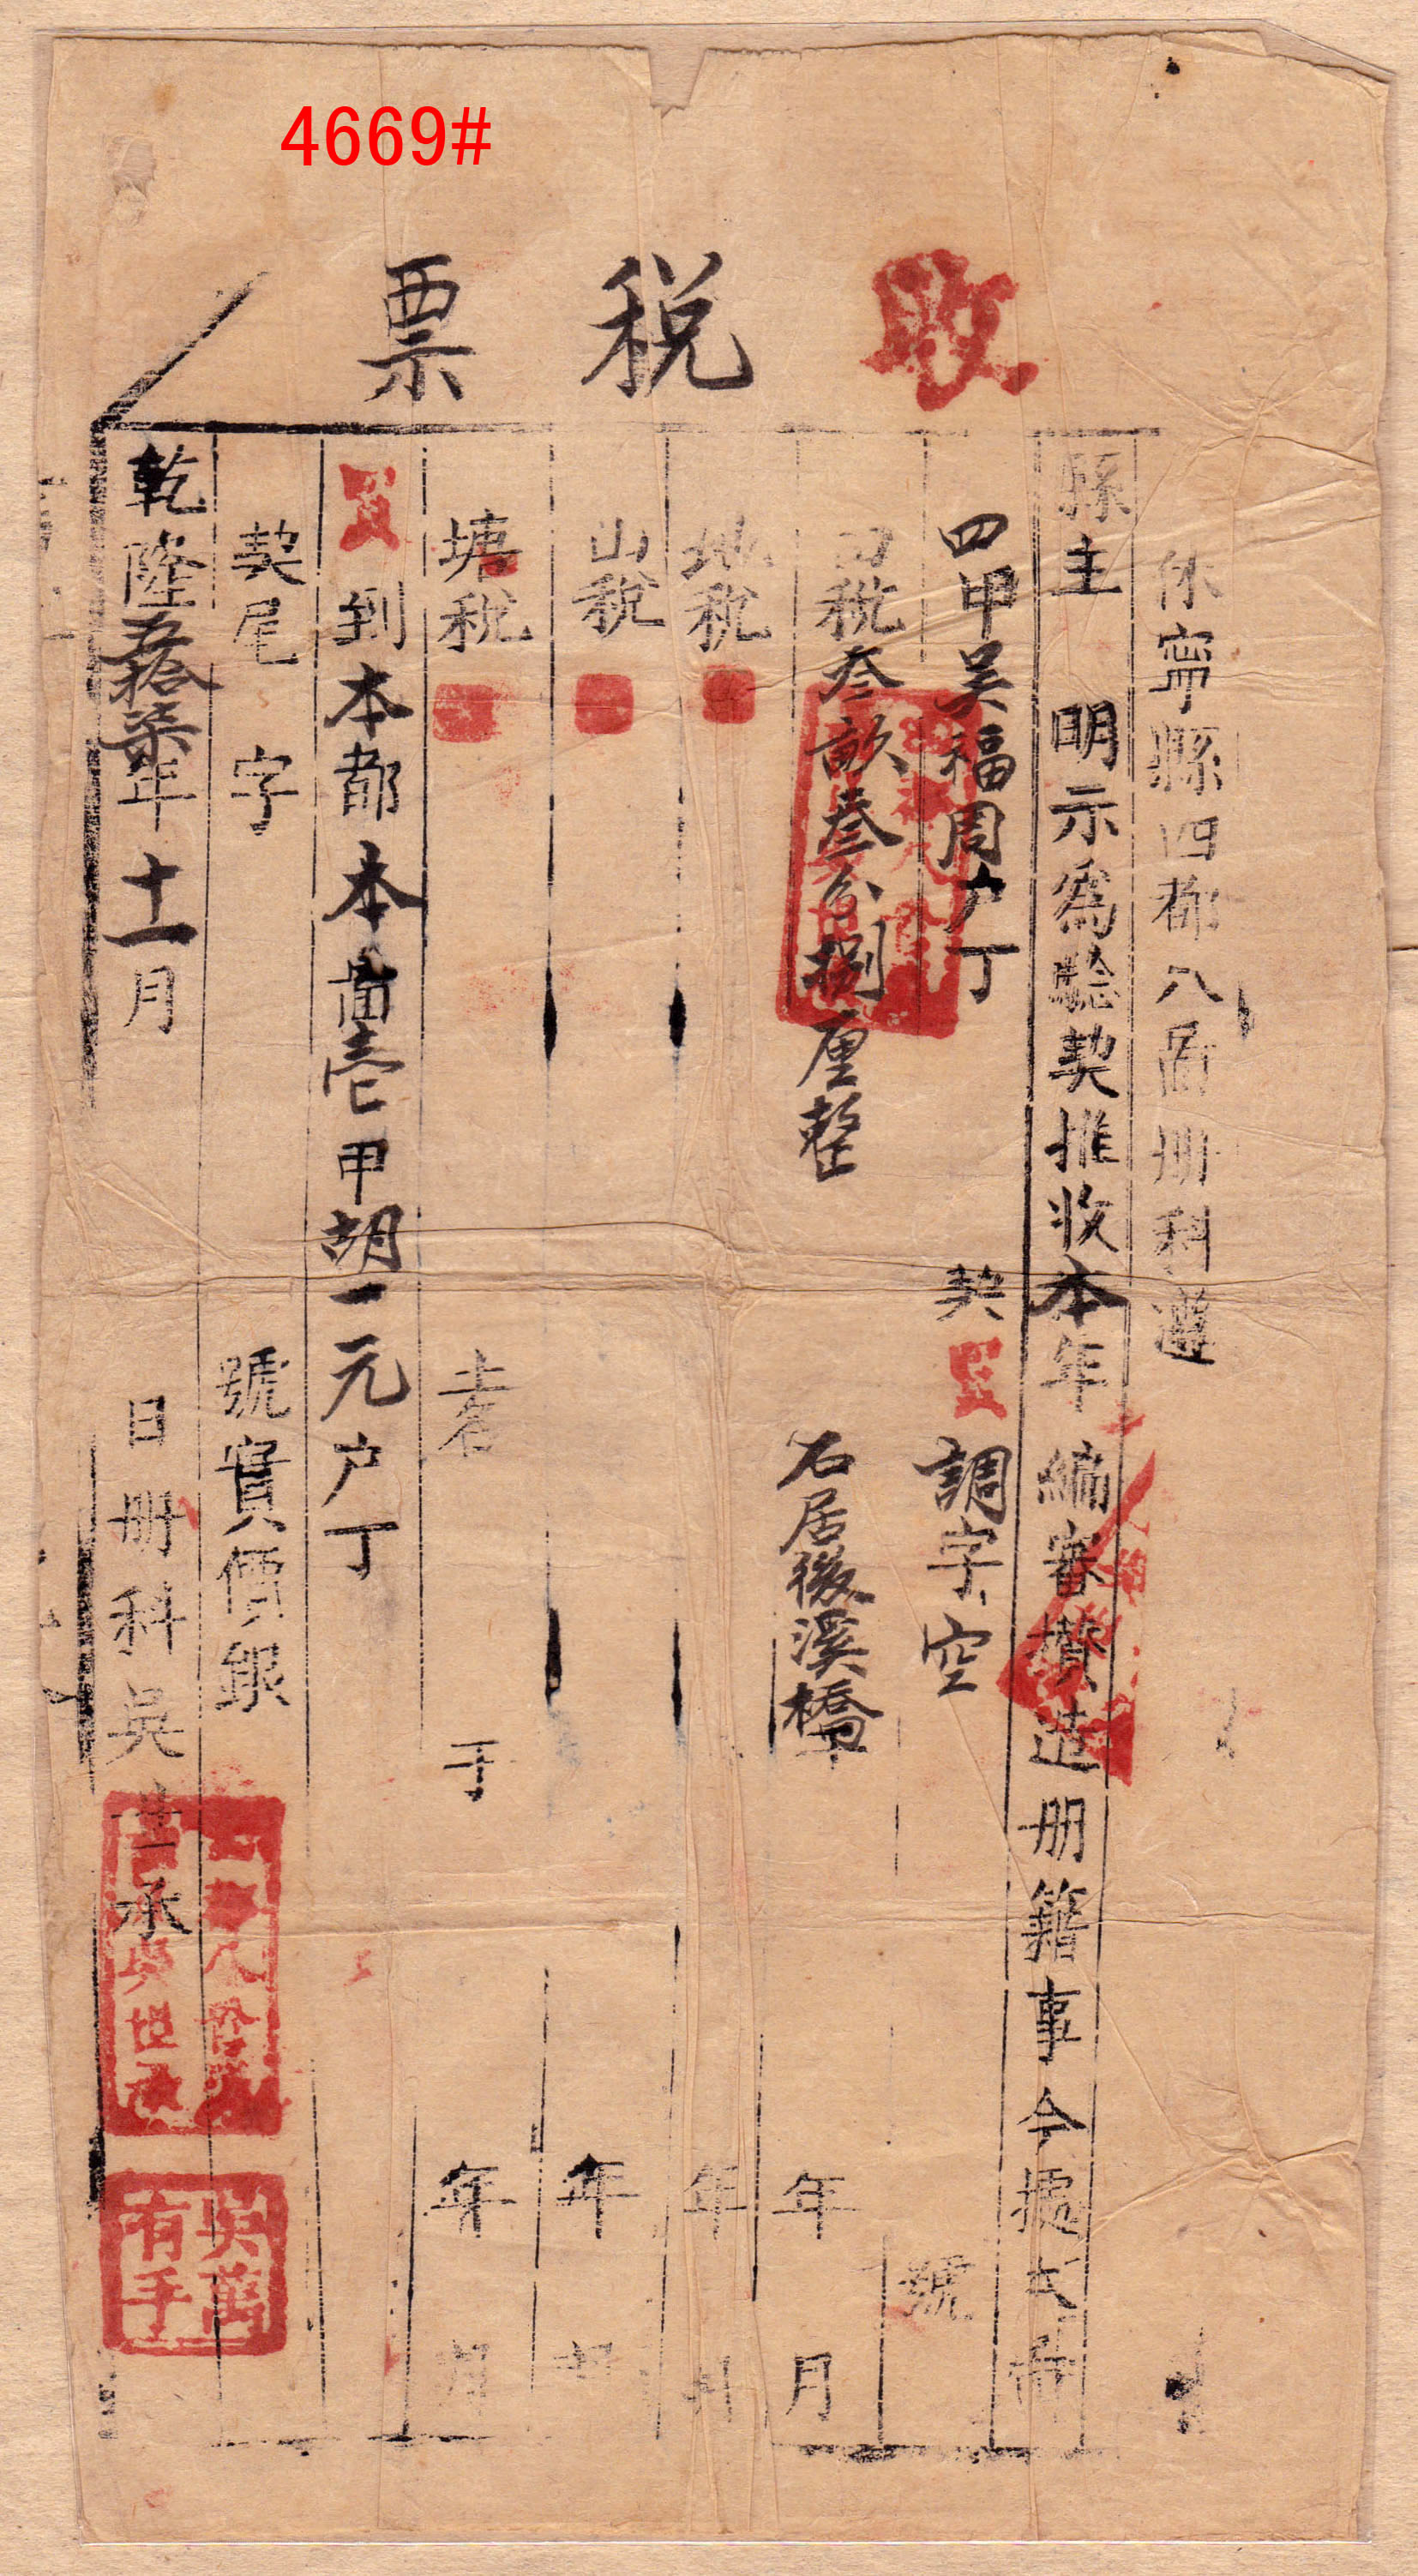 4669#
收税票
休寧縣四都八啚册科遵
縣主 明示為驗契推收本年編審攢造册籍事今據本啚
四甲吴福周户丁 契買 調字空 號
田税叁畝叁分捌厘整 石居後溪橋下 年 月
地税 年 月
山税 年 月
塘税 土名 于 年 月
買到本都本啚壱甲胡一元户丁
契尾 字 號實價銀
乾隆五拾柒年十一月 日册科吳世承
吳萬有手